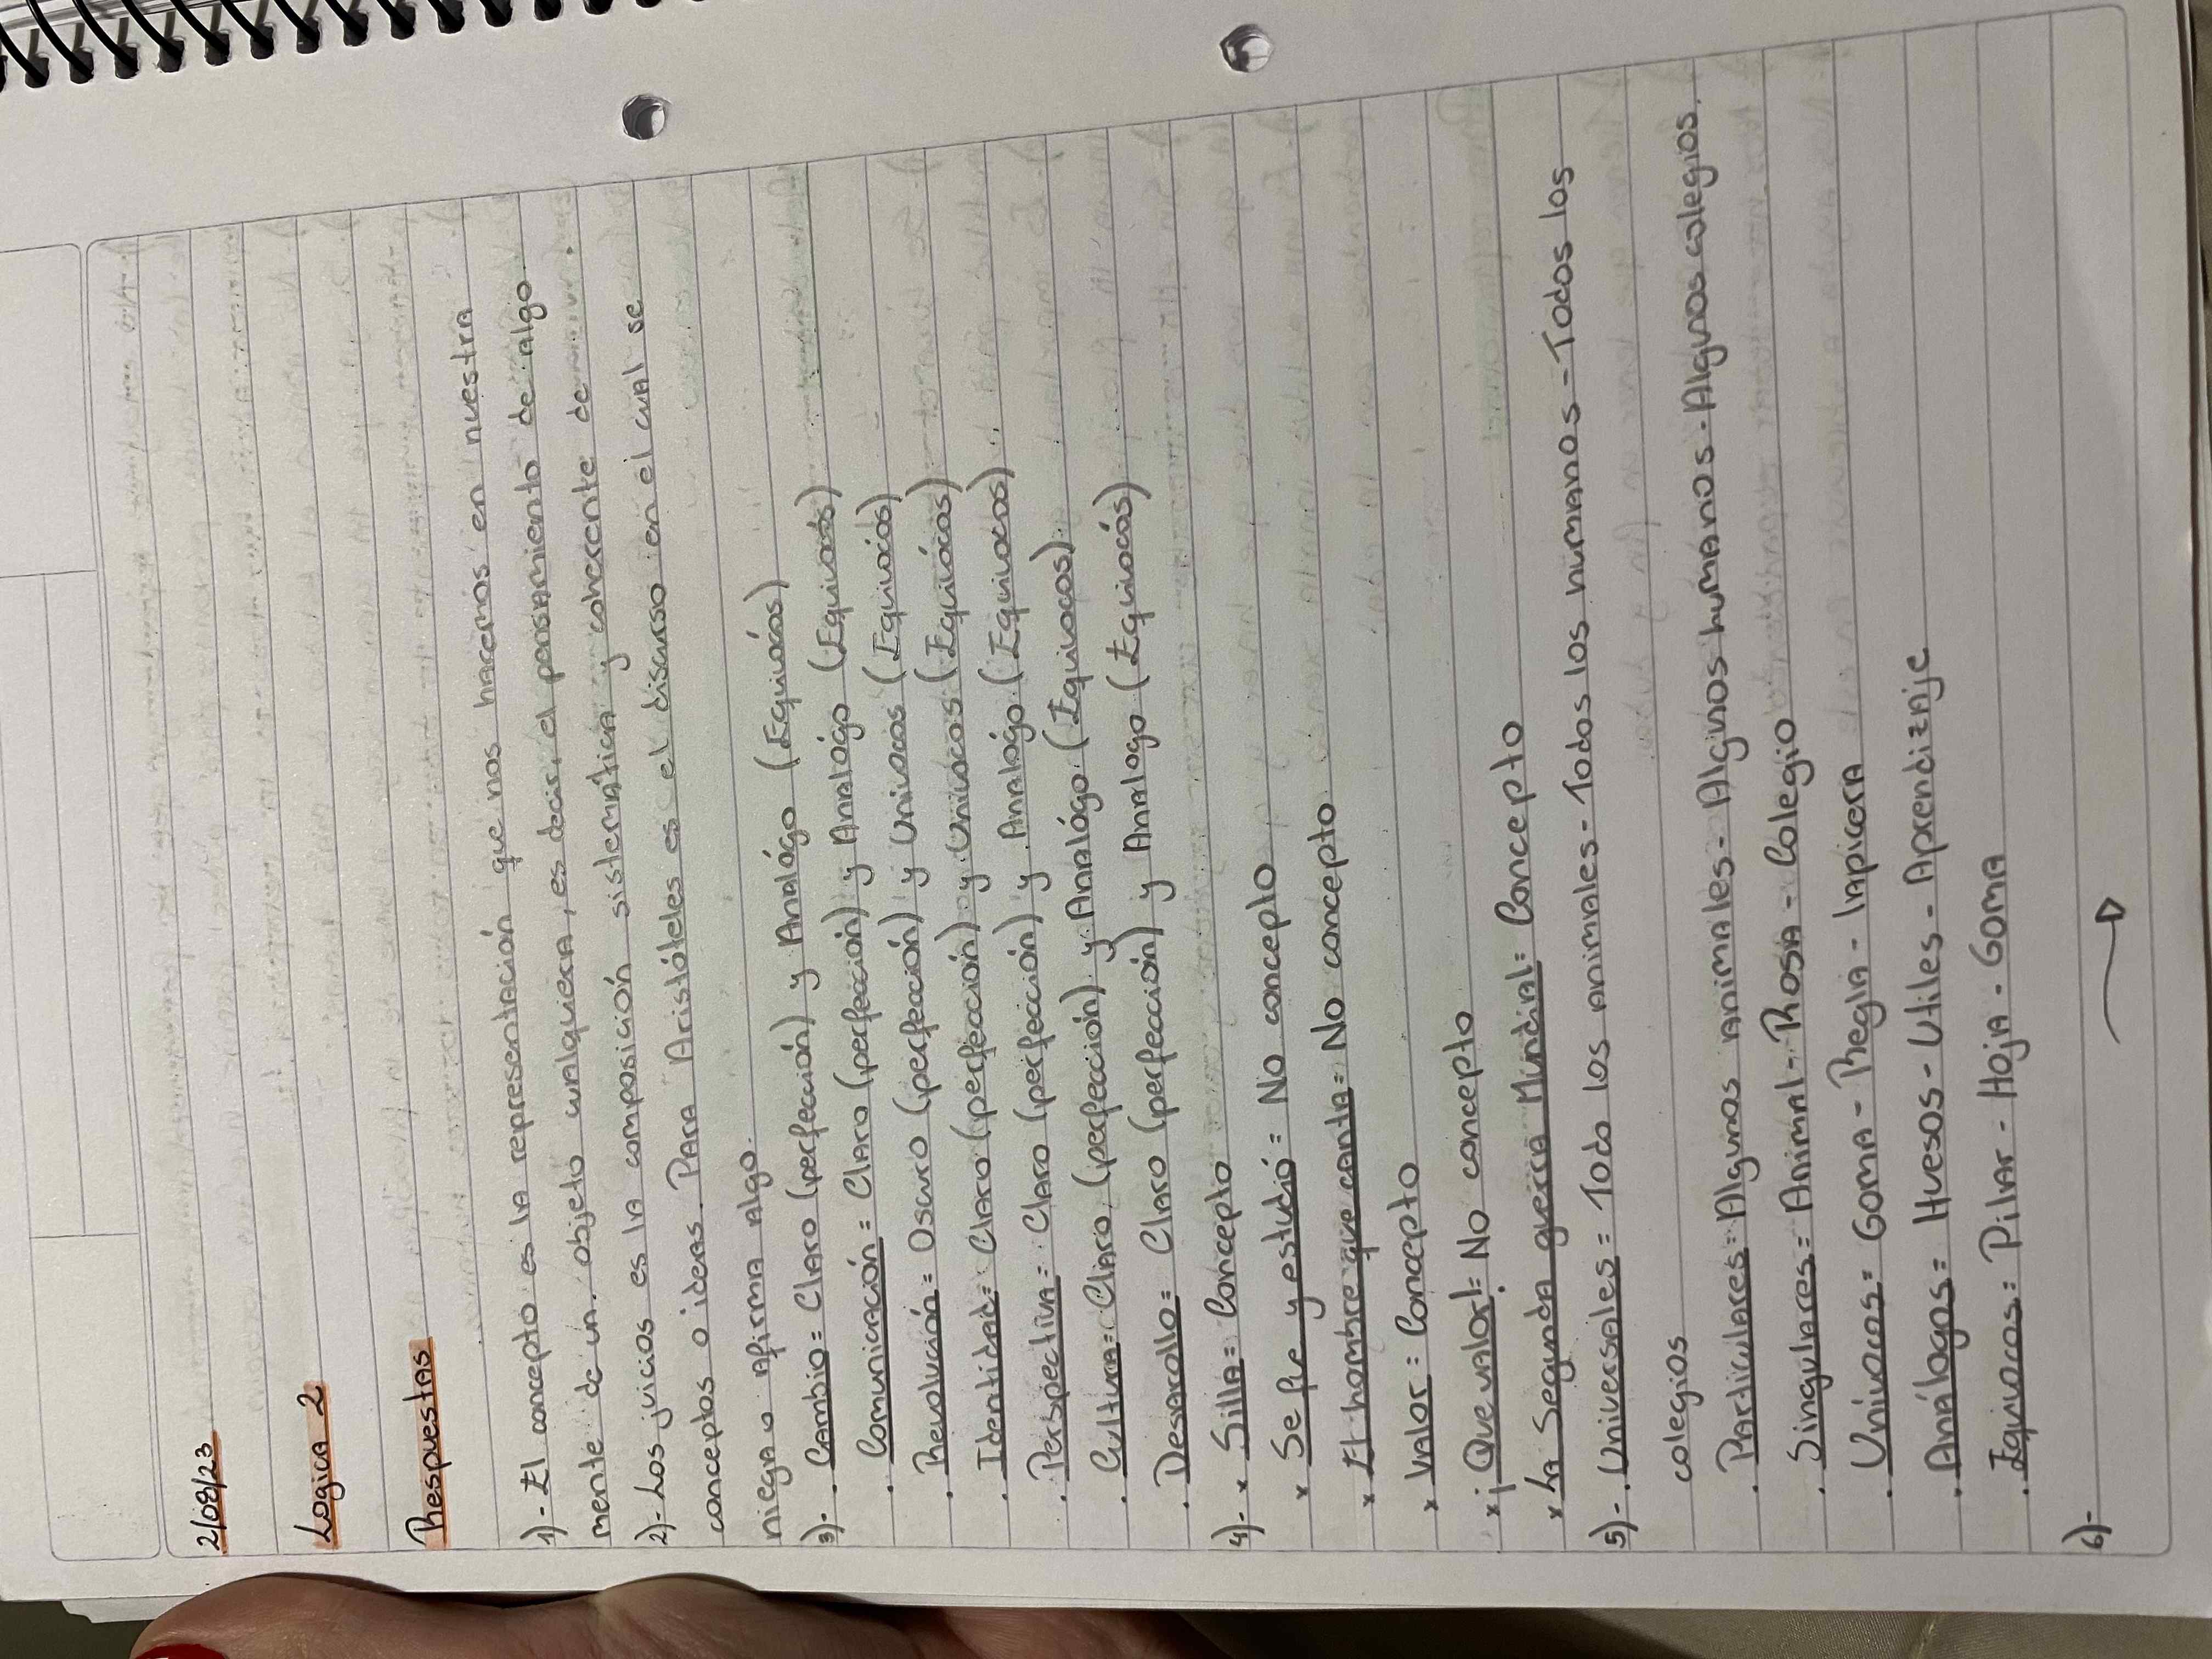 2/08/23
Logica 2
Respuestas
1)- El concepto es la representación que nos hacemos en nuestra
mente de un objeto cualquiera, es decir, el pensamiento de algo
2)- Los juicios es la composición sistemática y coherente de
conceptos o ideas. Para Aristóteles es el discurso en el cual se
niega o afirma algo.
3)- . Cambio = Claro (perfección) y Analógo (Equivocós)
. Comunicación = Claro (perfección) y Analógo (Equivocós)
. Revolución = Oscuro (perfección) y Univocos (Equivocós)
. Identidad = Claro (perfección) y Univocos (Equivocós)
. Perspectiva = Claro (perfección) y Analógo (Equivocos)
. Cultura = Claro (perfección) y Analógo (Equivocos)
. Desarollo = Claro (perfección) y Analogo (Equivocós)
4)- x Silla = Concepto
x Se fue y estudió = No concepto
x El hombre que canta = No concepto
x Valor = Concepto
x ¡Que valor! = No concepto
x La Segunda guerra Mundial = Concepto
5)- . Universales = Todo los animales - Todos los humanos - Todos los
colegios
. Particulares = Algunas animales - Alginos humanos - Algunos colegios.
. Singulares = Animal - Rosa - Colegio
. Unívocos = Goma - Regla - lapicera
. Análogos = Huesos - Utiles - Aprendizaje
. Equivocos = Pilar - Hoja - Goma
6)-